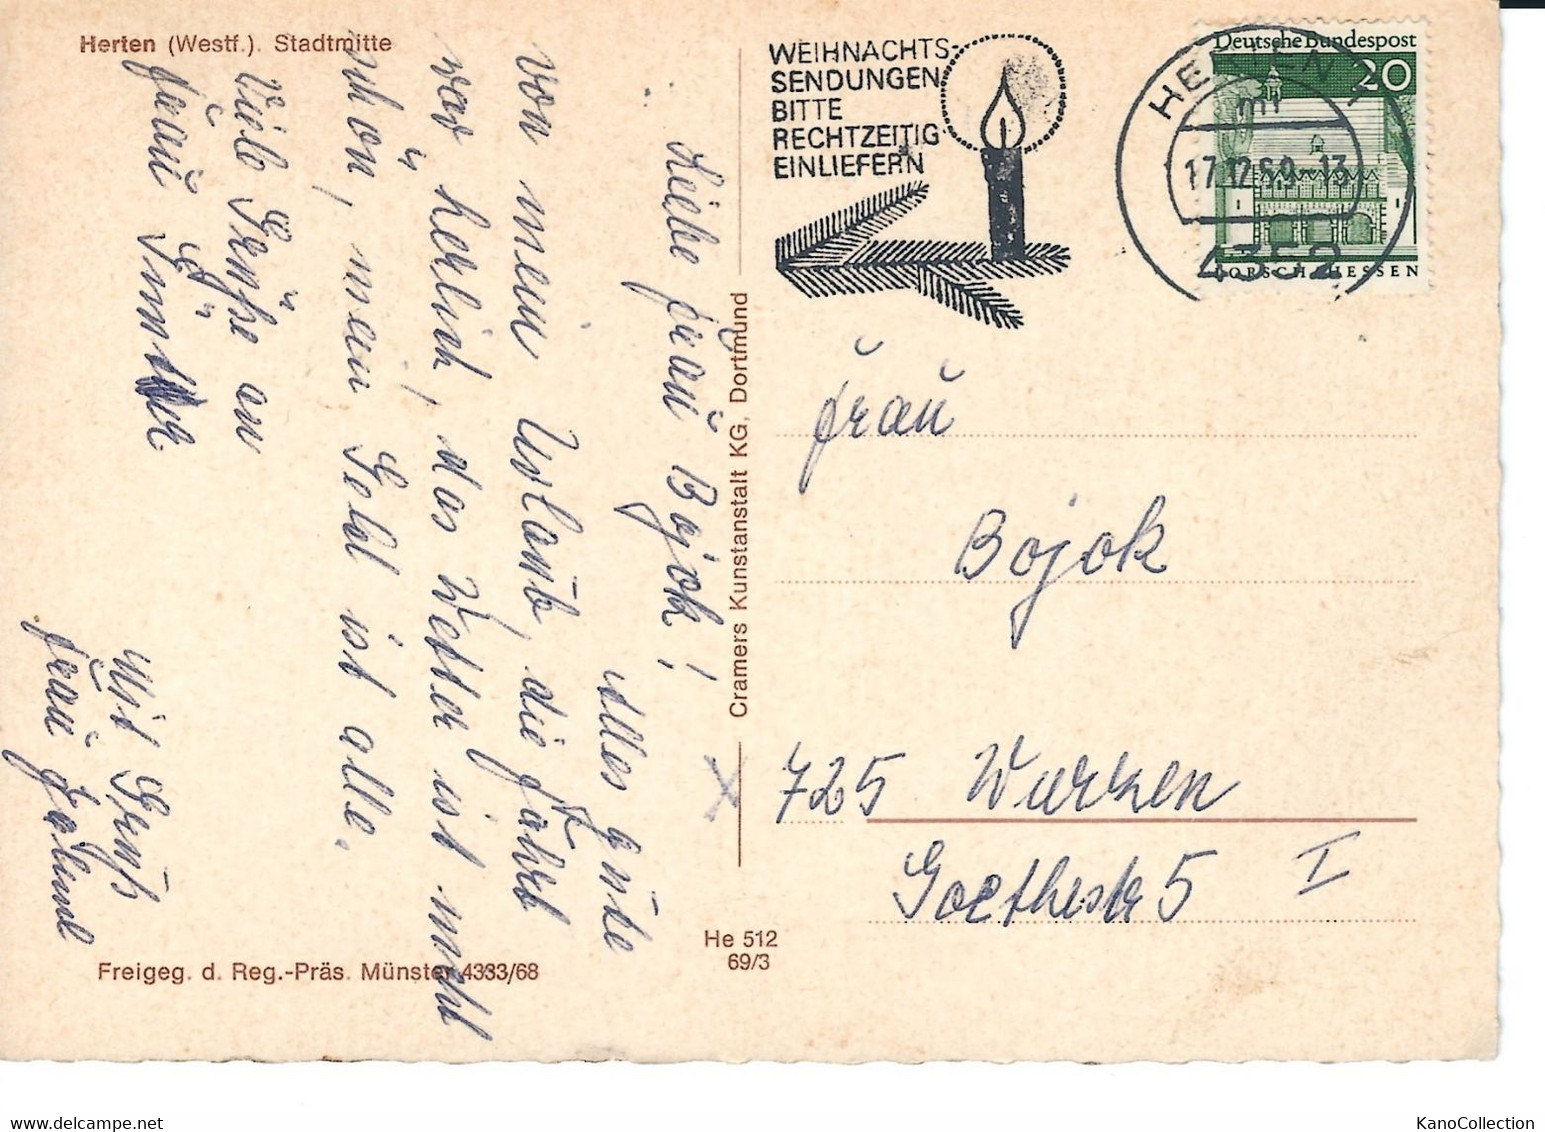 Herten (Westf.). Stadtmitte
WEIHNACHTS-
SENDUNGEN
BITTE
RECHTZEITIG
EINLIEFERN
Deutsche Bundespost
20
HERTEN 1
mf
17.12.69-13
4352
LORSCH/HESSEN
Liebe Frau Bojok!
Alles gute
von mein Urlaub, die Fahrt
war herlich, das Wetter ist nicht
schön, mein Geld ist alle.
Viele Grüße an
Frau
Mit Gruß
Frau
Cramers Kunstanstalt KG, Dortmund
Frau
Bojok
725 Wurzen
Goethestr 5 I
He 512
69/3
Freigeg. d. Reg.-Präs. Münster 4333/68
KanoCollection